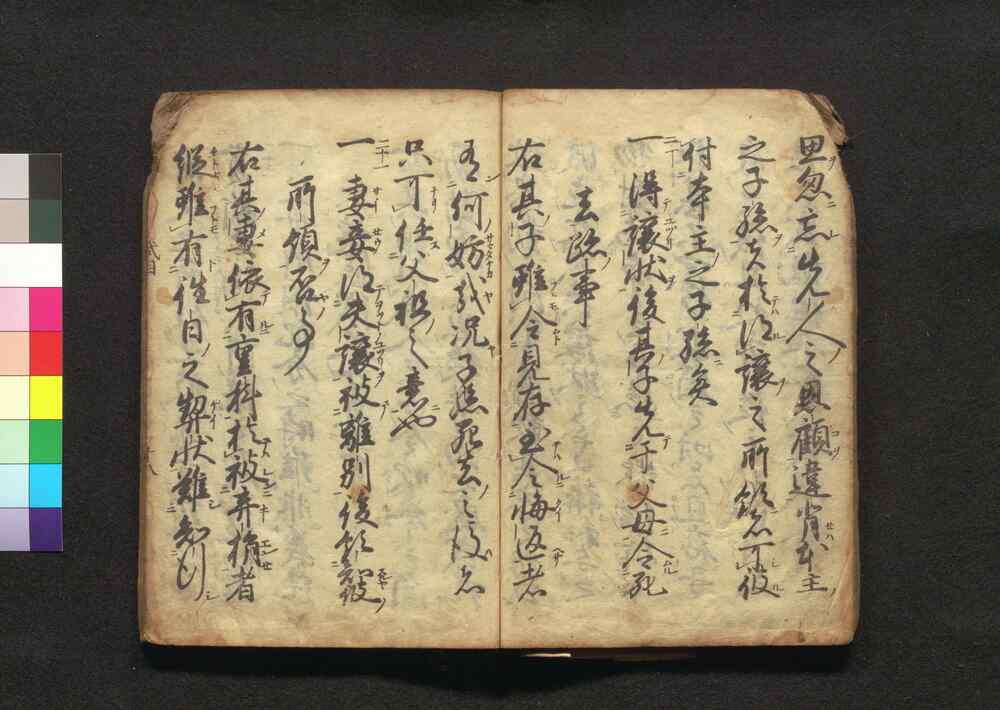 恩忽忘先人之恩顧違背本主
之子孫者於得譲之所領者可被
付本主之子孫矣
二十
一得譲状後其子先于父母令死
去跡事
右其子雖令見存至令悔返者
有何妨哉況子孫死去之後者
只可任父祖之意也
二十一
一妻妾得夫譲被離別後領知彼
所領否事
右其妻依有重科於被弃捐者
縦雖有往日之契状難知行